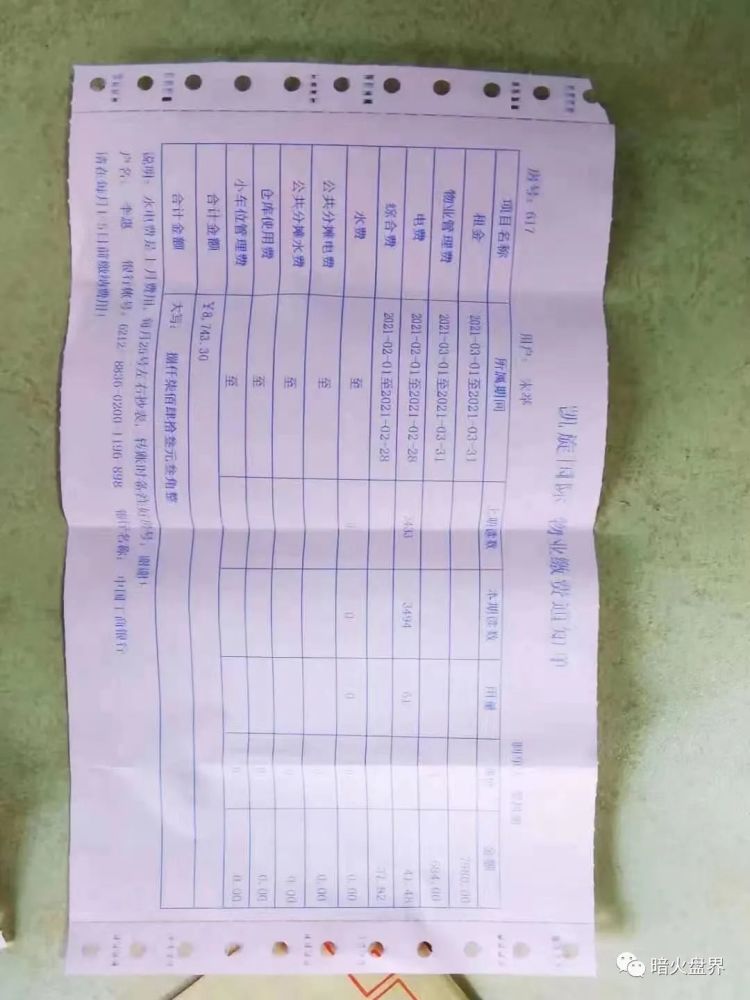 凯旋国际 物业缴费通知单
房号：617 用户：
项目名称 所属期间 上期读数 本期读数 用量 金额
租金 2021-03-01至2021-03-31 7980.00
物业管理费 2021-03-01至2021-03-31 684.00
电费 2021-02-01至2021-02-28 3433 3494 61 41.48
综合费 2021-02-01至2021-02-28 37.82
水费 至 0 0 0 0 0.00
公共分摊电费 至 0 0.00
公共分摊水费 至 0 0.00
仓库使用费 至 0 0.00
小车位管理费 至 0 0.00
合计金额 ¥8,743.30
合计金额 大写： 捌仟柒佰肆拾叁元叁角整
说明：水电费是上月费用，每月25号左右抄表，转账时备注好房号，谢谢！
户名： 李惠 银行账号：6212 8836 0200 1196 898 银行名称： 中国工商银行
请在每月1-5日前缴纳费用！
暗火盘界